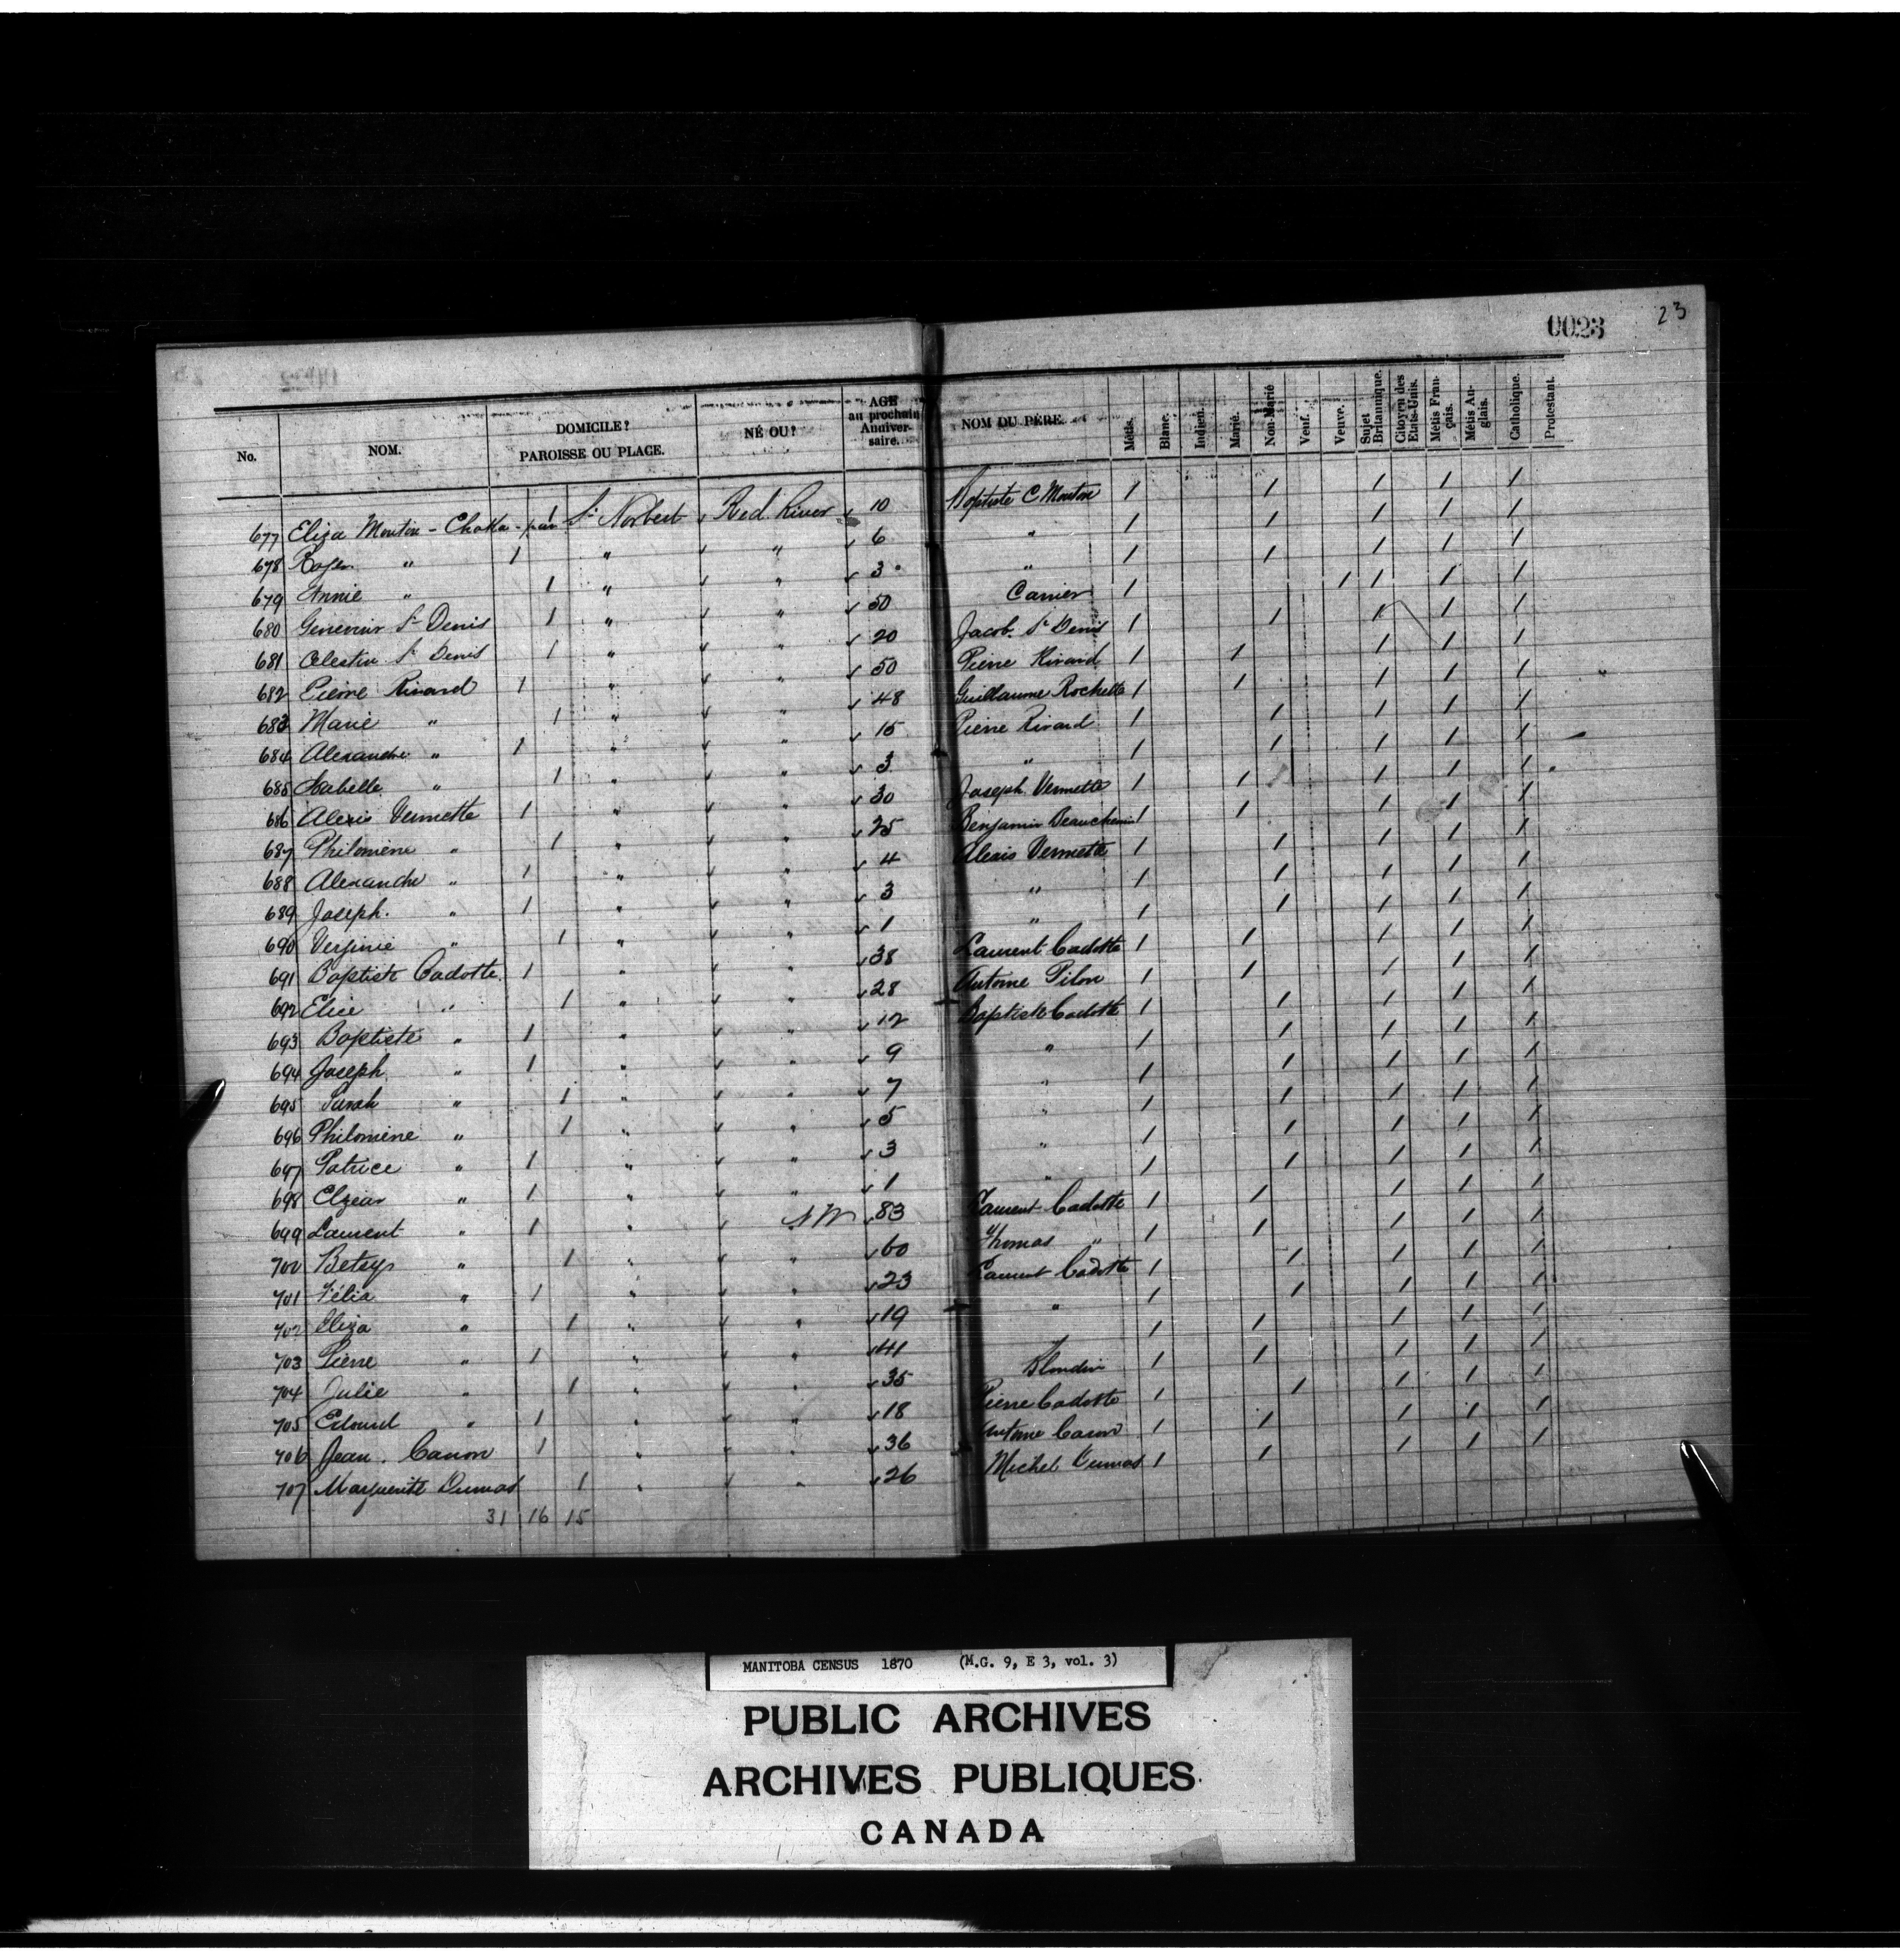 0023 23
No. NOM. DOMICILE? PAROISSE OU PLACE. NÉ OU? AGE au prochain Anniversaire. NOM DU PÈRE. Métis. Blanc. Indien. Marié. Non-Marié Veuf. Veuve. Sujet Britannique. Citoyen des Etats-Unis. Métis Français. Métis Anglais. Catholique. Protestant.
677 Eliza Mouton - Chatka - pan 1 St Norbert Red River 10 Baptiste C Mouton 1 1 1 1 1
678 " 1 " " 6 " 1 1 1 1 1
679 Annie " 1 " " 3 " 1 1 1 1 1
680 St Denis 1 " " 50 Carrier 1 1 1 1 1
681 Celestin St Denis 1 " " 20 Jacob St Denis 1 1 1 1 1
682 Pierre Rivard 1 " " 50 Pierre Rivard 1 1 1 1 1
683 Marie " 1 " " 48 Guillaume Rochette 1 1 1 1 1
684 Alexandre " 1 " " 15 Pierre Rivard 1 1 1 1 1
685 Isabelle " 1 " " 3 " 1 1 1 1 1
686 Alexis Vermette 1 " " 30 Joseph Vermette 1 1 1 1 1
687 Philomène " 1 " " 25 Benjamin Beauchemin 1 1 1 1 1
688 Alexandre " 1 " " 4 Alexis Vermette 1 1 1 1 1
689 Joseph. " 1 " " 3 " 1 1 1 1 1
690 Verginie " 1 " " 1 " 1 1 1 1 1
691 Baptiste Cadotte 1 " " 38 Laurent Cadotte 1 1 1 1 1
692 Elice " 1 " " 28 Antoine Pilon 1 1 1 1 1
693 Baptiste " 1 " " 12 Baptiste Cadotte 1 1 1 1 1
694 Joseph " 1 " " 9 " 1 1 1 1 1
695 Sarah " 1 " " 7 " 1 1 1 1 1
696 Philomène " 1 " " 5 " 1 1 1 1 1
697 Patrice " 1 " " 3 " 1 1 1 1 1
698 Elzéar " 1 " " 1 " 1 1 1 1 1
699 Laurent " 1 " N W 83 Laurent Cadotte 1 1 1 1 1
700 Betsy " 1 " " 60 Thomas " 1 1 1 1 1
701 " 1 " " 23 Laurent Cadotte 1 1 1 1 1
702 Eliza " 1 " " 19 " 1 1 1 1 1
703 Pierre " 1 " " 41 1 1 1 1 1
704 Julie " 1 " " 35 Blondin 1 1 1 1 1
705 Edouard " 1 " " 18 Pierre Cadotte 1 1 1 1 1
706 Jean. Caron 1 " " 36 Antoine Caron 1 1 1 1 1
707 Marguerite Dumas 1 " " 26 Michel Dumas 1 1 1 1 1
31 16 15
MANITOBA CENSUS 1870 (M.G. 9, E 3, vol. 3)
PUBLIC ARCHIVES
ARCHIVES PUBLIQUES
CANADA